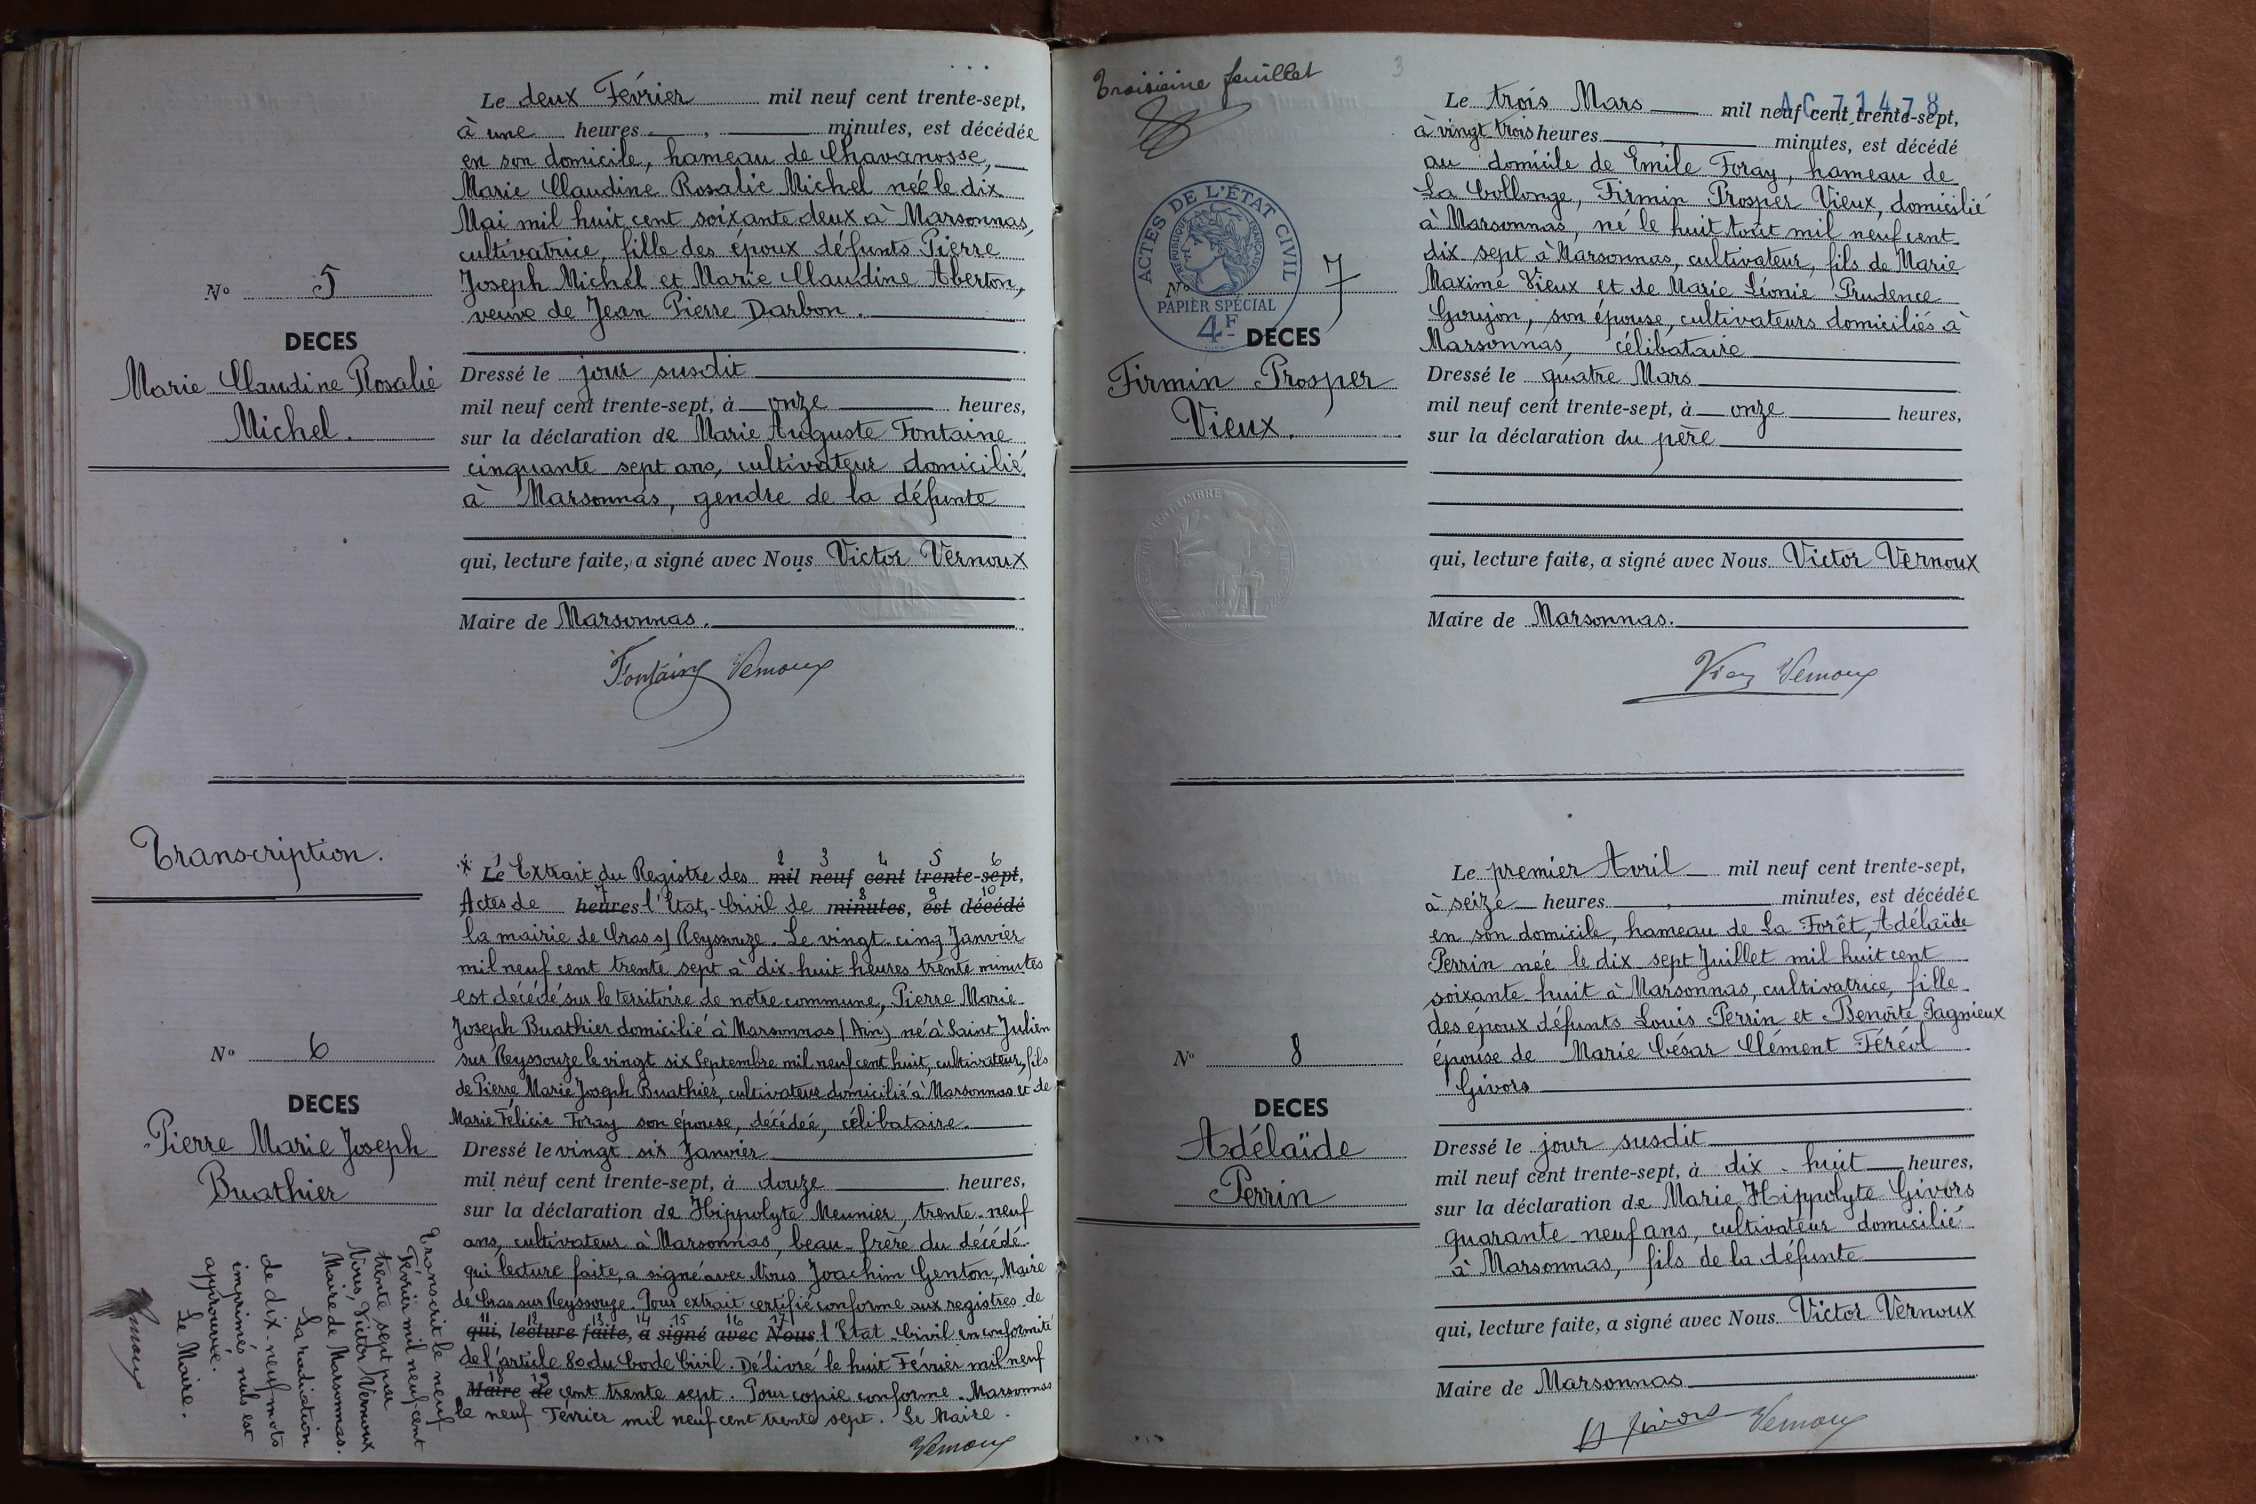 Le deux Février mil neuf cent trente-sept,
à une heures, minutes, est décédée
en son domicile, hameau de Chavanosse,
Marie Claudine Rosalie Michel née le dix
Mai mil huit cent soixante deux à Marsonnas,
cultivatrice, fille des époux défunts Pierre
Joseph Michel et Marie Claudine Aberton,
veuve de Jean Pierre Darbon.
N° 5
DECES
Marie Claudine Rosalie
Michel.
Dressé le jour susdit
mil neuf cent trente-sept, à onze heures,
sur la déclaration de Marie Auguste Fontaine
cinquante sept ans, cultivateur domicilié
à Marsonnas, gendre de la défunte
qui, lecture faite, a signé avec Nous Victor Vernoux
Maire de Marsonnas.
Fontaine Vernoux
Transcription.
N° 6
DECES
Pierre Marie Joseph
Buathier
* Le Extrait du Registre des mil neuf cent trente-sept,
2 3 4 5 6
Actes de heures l'Etat-Civil de minutes, est décédé
7 8 9 10
la mairie de Cras s/ Reyssouze. Le vingt-cinq Janvier
mil neuf cent trente sept à dix-huit heures trente minutes
est décédé sur le territoire de notre commune, Pierre Marie
Joseph Buathier domicilié à Marsonnas (Ain), né à Saint Julien
sur Reyssouze le vingt six Septembre mil neuf cent huit, cultivateur, fils
de Pierre Marie Joseph Buathier, cultivateur domicilié à Marsonnas et de
Marie Félicie Foray son épouse, décédée, célibataire.
Dressé le vingt six Janvier
mil neuf cent trente-sept, à douze heures,
sur la déclaration de Hippolyte Meunier, trente-neuf
ans, cultivateur à Marsonnas, beau-frère du décédé
qui lecture faite, a signé avec Nous Joachim Genton, Maire
de Cras sur Reyssouze. Pour extrait certifié conforme aux registres de
11 12 13 14 15 16 17
qui, lecture faite, a signé avec Nous l'Etat-Civil en conformité
de l'article 80 du Code Civil. Délivré le huit Février mil neuf
18 19
Maire de cent trente sept. Pour copie conforme. Marsonnas
le neuf Février mil neuf cent trente sept. Le Maire.
Vernoux
Transcrit le neuf
Février mil neuf-cent
trente sept par
Nous, Victor Vernoux
Maire de Marsonnas.
La radiation
de dix-neuf mots
imprimés nuls est
approuvée.
Le Maire.
Vernoux
Troisième feuillet
3
AC 71478
ACTES DE L'ÉTAT CIVIL
REPUBLIQUE FRANÇAISE
PAPIER SPÉCIAL
4F
N° 7
DECES
Firmin Prosper
Vieux.
Le trois Mars mil neuf cent trente-sept,
à vingt trois heures, minutes, est décédé
au domicile de Emile Foray, hameau de
La Collonge, Firmin Prosper Vieux, domicilié
à Marsonnas, né le huit Août mil neuf cent
dix sept à Marsonnas, cultivateur, fils de Marie
Maxime Vieux et de Marie Léonie Prudence
Goujon, son épouse, cultivateurs domiciliés à
Marsonnas, célibataire
Dressé le quatre Mars
mil neuf cent trente-sept, à onze heures,
sur la déclaration du père
qui, lecture faite, a signé avec Nous Victor Vernoux
Maire de Marsonnas.
Vieux Vernoux
N° 8
DECES
Adélaïde
Perrin
Le premier Avril mil neuf cent trente-sept,
à seize heures, minutes, est décédée
en son domicile, hameau de La Forêt, Adélaïde
Perrin née le dix sept Juillet mil huit cent
soixante huit à Marsonnas, cultivatrice, fille
des époux défunts Louis Perrin et Benoîte Pagnieux
épouse de Marie César Clément Féréol
Givors
Dressé le jour susdit
mil neuf cent trente-sept, à dix-huit heures,
sur la déclaration de Marie Hippolyte Givors
quarante neuf ans, cultivateur domicilié
à Marsonnas, fils de la défunte
qui, lecture faite, a signé avec Nous Victor Vernoux
Maire de Marsonnas
H Givors Vernoux